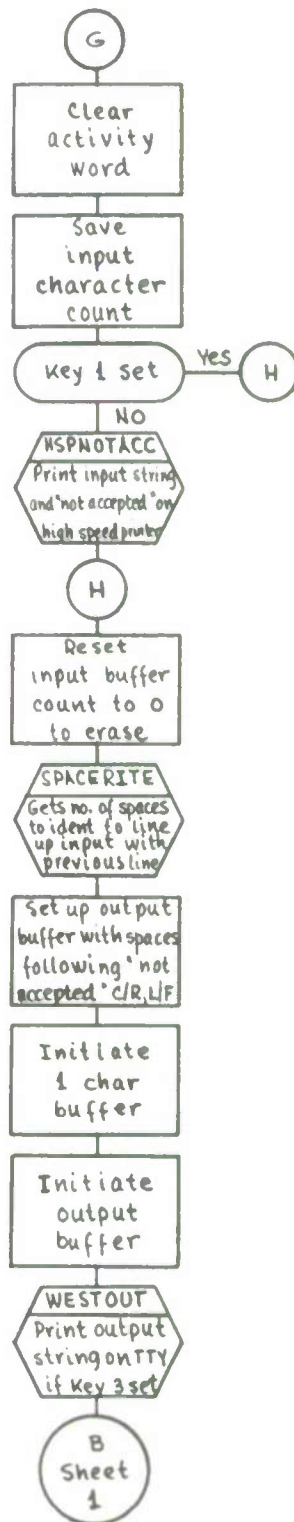 G
Clear
activity
word
Save
input
character
count
Key 1 set
Yes
H
NO
HSPNOTACC
Print input string
and "not accepted" on
high speed printer
H
Reset
input buffer
count to 0
to erase
SPACERITE
Gets no. of spaces
to ident to line
up input with
previous line
Set up output
buffer with spaces
following "not
accepted" C/R, L/F
Initiate
1 char
buffer
Initiate
output
buffer
WESTOUT
Print output
string on TTY
if Key 3 set
B
Sheet
1